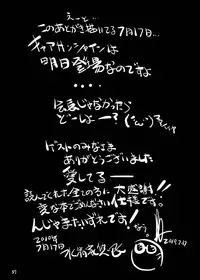 えーと…
このあとがき描いてる7月17日…
キャプテンシャインは
明日登場なのですよ
・・・・
会長じゃなかったら
どーしよー?
ゲストのみなさま
ありがとうございました
愛してるー
読んでくれた全ての方に大感謝!
変な本でごめんなさい仕様です!
んじゃまたいずれです!
7月17日